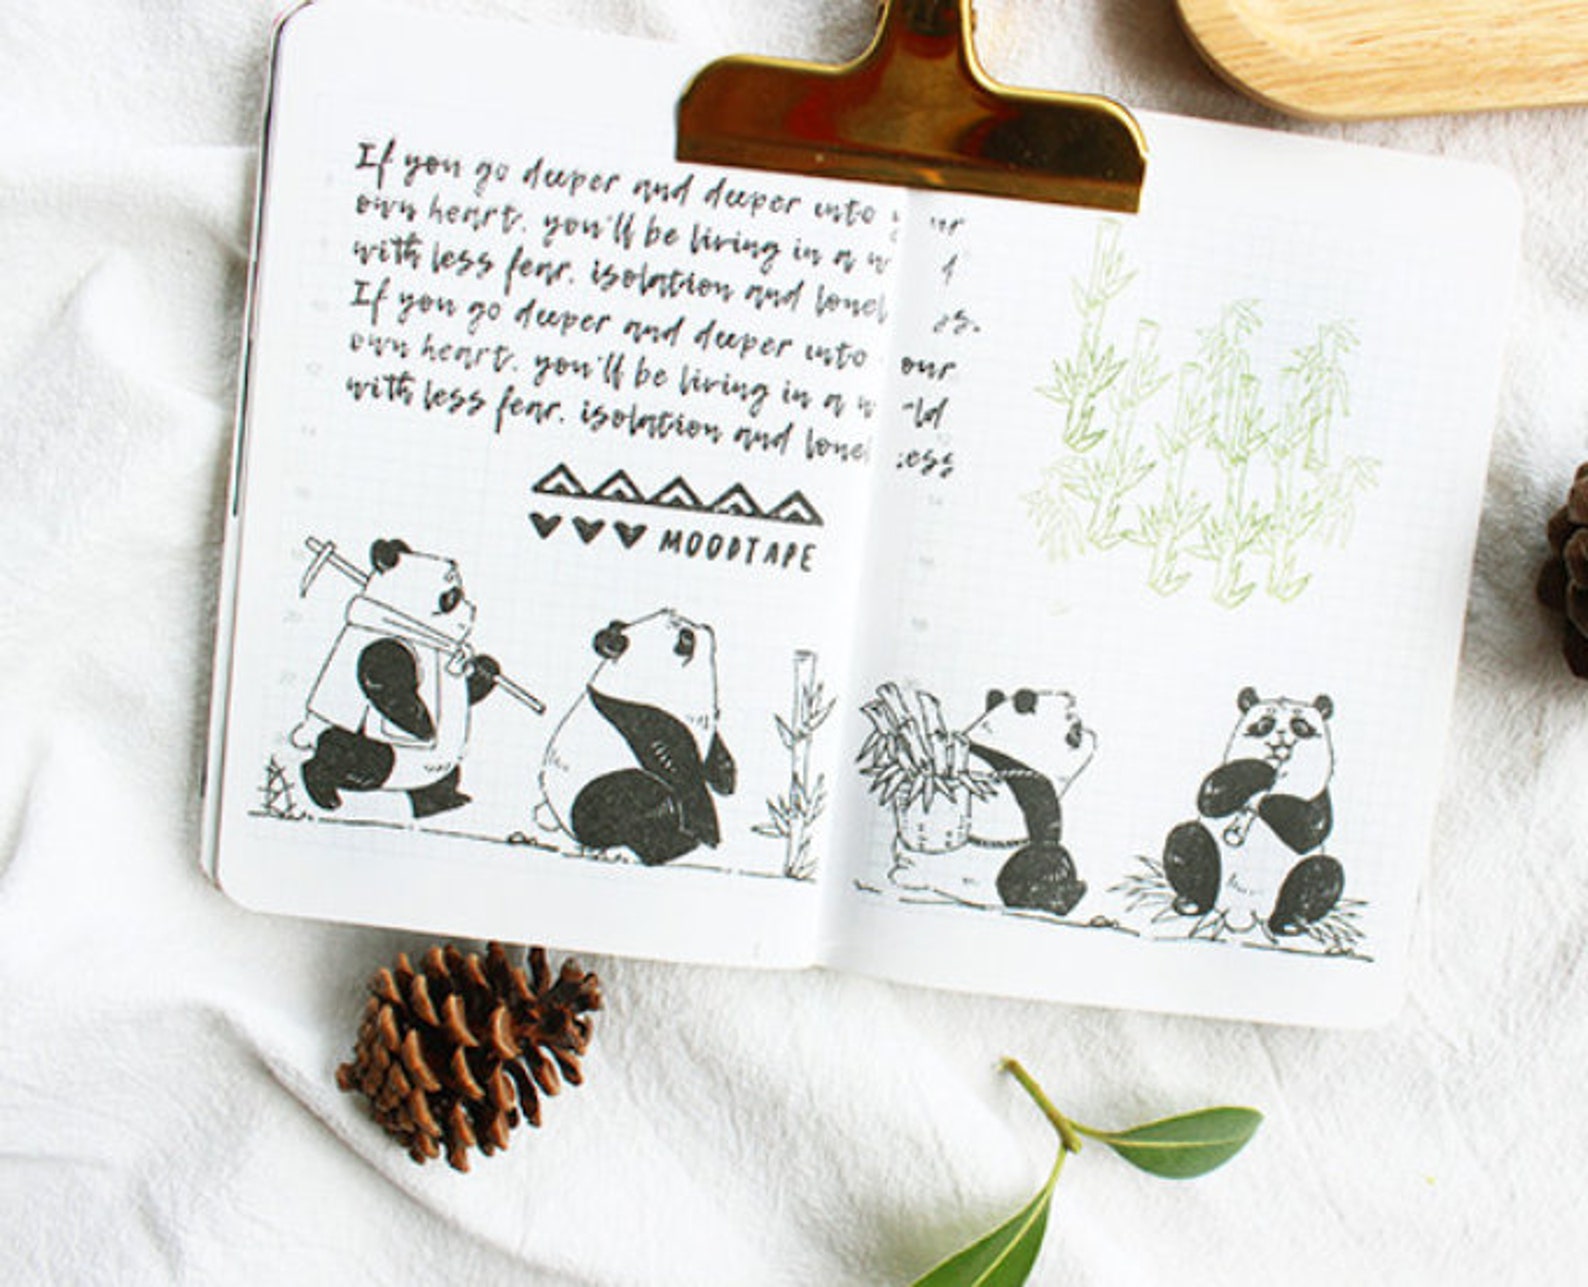 If you go deeper and deeper into your
own heart, you'll be living in a w d
with less fear, isolation and lonel ss.
If you go deeper and deeper into our
own heart, you'll be living in a w ld
with less fear, isolation and lonel ess
MOODTAPE